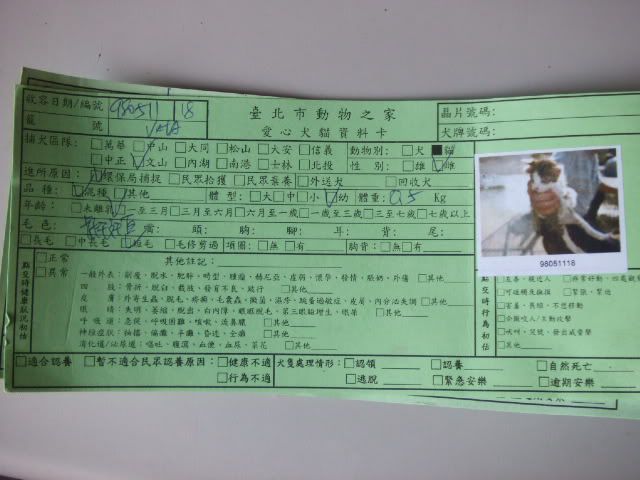 臺北市動物之家
愛心犬貓資料卡
收容日期/編號 980511 18
籠 號
晶片號碼:
犬牌號碼:
捕犬區隊: □萬華 □中山 □大同 □松山 □大安 □信義 動物別: □犬 ■貓
□中正 □文山 □內湖 □南港 □士林 □北投 性 別: □雄 □雌
進所原因: □環保局捕捉 □民眾拾獲 □民眾棄養 □外送犬 □回收犬
品 種: □混種 □其他 體 型: □大 □中 □小 □幼 體重: 0.5 Kg
年齡: □未離乳 □一至三月 □三月至六月 □六月至一歲 □一歲至三歲 □三至七歲 □七歲以上
毛色: 背: 頭: 胸: 腳: 耳: 尾:
□長毛 □中長毛 □短毛 □毛修剪過 項圈: □無 □有 胸背: □無 □有
點交時健康狀況初估
□正常
□異常
其他註記:
一般外表: 脫水, 肥胖, 腫瘤, 赫尼亞, 虛弱, 懷孕, 發情, 脹奶, 外傷 □其他
四 肢: 骨折, 脫臼, 截肢, 發育不良, 跛行 □其他
皮 膚: 外寄生蟲, 脫毛, 疥癬, 毛囊蟲, 黴菌, 濕疹, 皮膚, 內分泌失調 □其他
眼 睛: 失明, 萎縮, 脫出, 白內障, 眼瞼脫毛, 第三眼瞼增生, 眼屎 □其他
呼吸道: 急促, 呼吸困難, 咳嗽, 流鼻膿 □其他
神經症狀: 抽搐, 偏癱, 平癱, 昏迷, 全癱 □其他
消化道/泌尿道: 嘔吐, 腹瀉, 血便, 血尿, 菜花 □其他
98051118
點交時行為初估
□友善, 親近人 □非常好動, 四處
□可追觸及撫摸 □緊張, 緊張
□害羞, 畏縮, 不想移動
□企圖咬人/主動攻擊
□吠叫, 哭號, 發出威脅聲
□其他
□適合認養 □暫不適合民眾認養原因: □健康不適 犬隻處理情形: □認領 □認養 □自然死亡
□行為不適 □逃脫 □緊急安樂 □逾期安樂